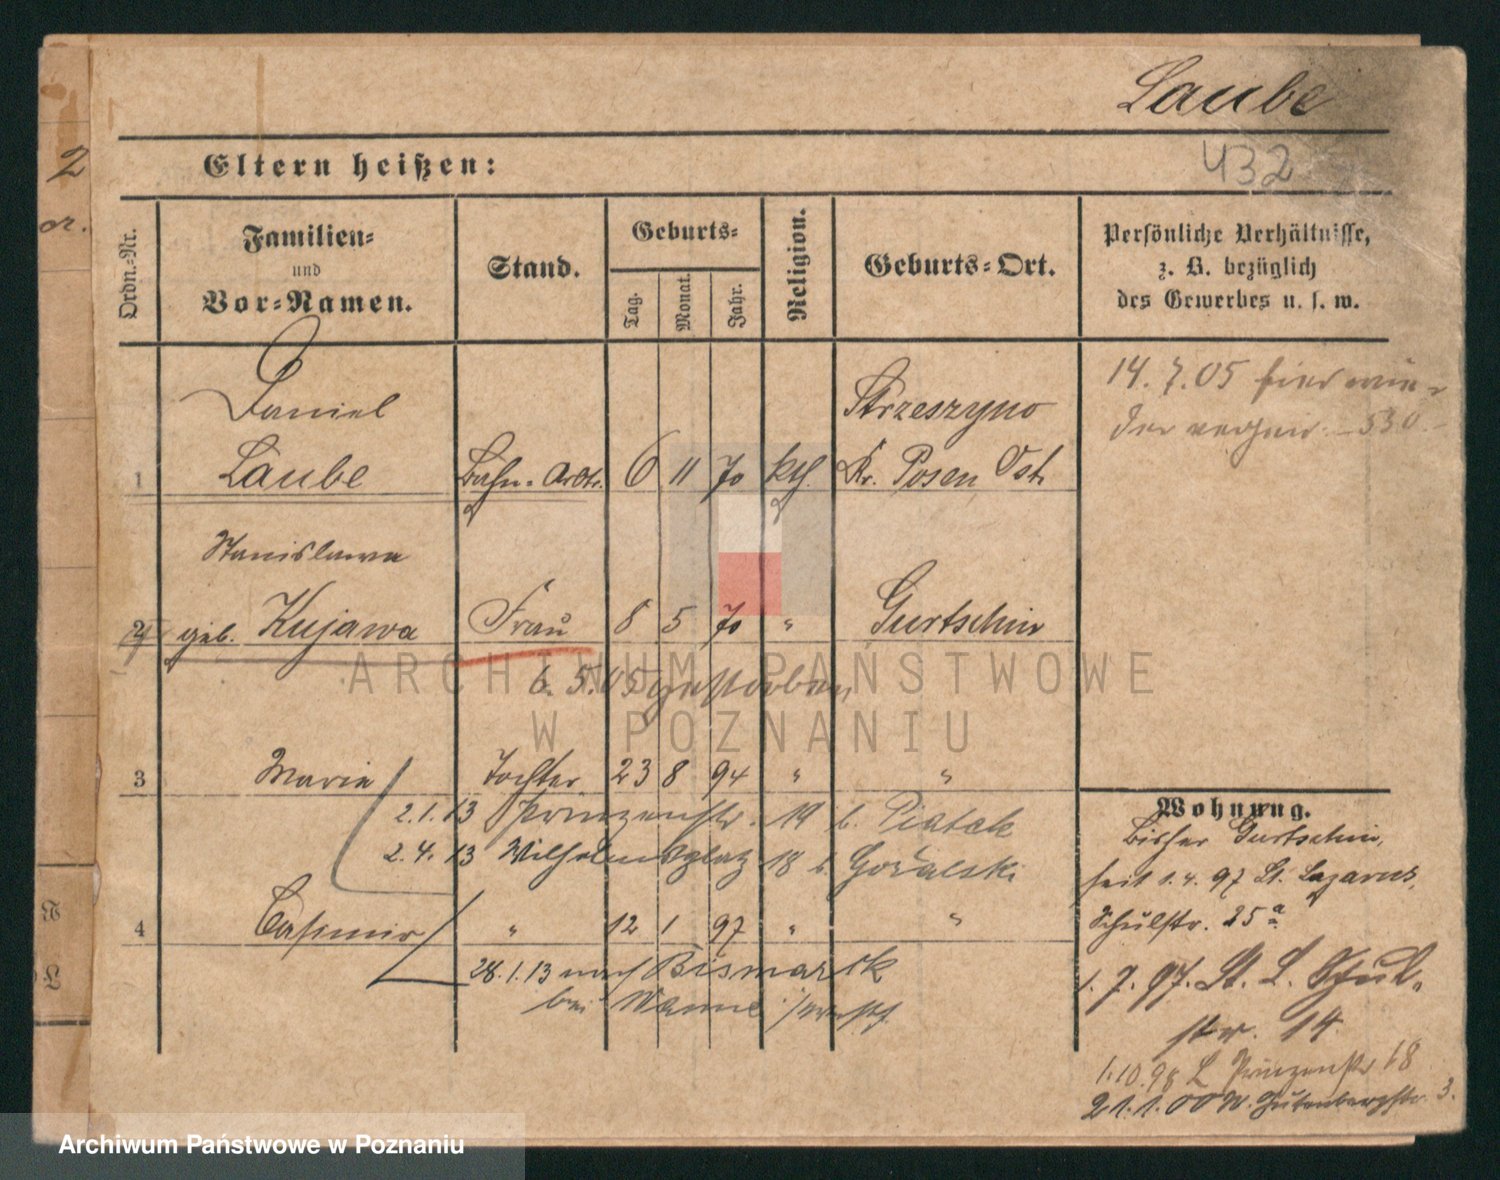 Laube
432
Eltern heißen:
Ordn.-Nr.
Familien-
und
Vor-Namen.
Stand.
Geburts-
Tag.
Monat.
Jahr.
Religion.
Geburts-Ort.
Persönliche Verhältnisse,
z. B. bezüglich
des Gewerbes u. s. w.
14. 7. 05 hier
530
Daniel Strzeszyno
1 Laube Bahn-Arbtr. 6 11 70 kth. Kr. Posen Ost.
Stanislawa
2 geb. Kujawa Frau 8 5 70 " Gurtschin
6. 5. 05 gestorben
3 Maria Tochter 23 8 94 " "
2. 1. 13 Prinzenstr. 19 b. Piatek
2. 4. 13 Wilhelmsplatz 18 b. Goralski
4 Casimir " 12 1 97 " "
28. 1. 13 nach Bismarck
bei Wanne
Wohnung.
Bisher Gurtschin,
seit 1. 4. 97 St. Lazarus,
Schulstr. 25a
1. 7. 97. St. L. Schul-
str. 14
1. 10. 98 L Prinzenstr 18
21. 1. 00 W. Gutenbergstr. 3.
2
ARCHIWUM PAŃSTWOWE
W POZNANIU
Archiwum Państwowe w Poznaniu